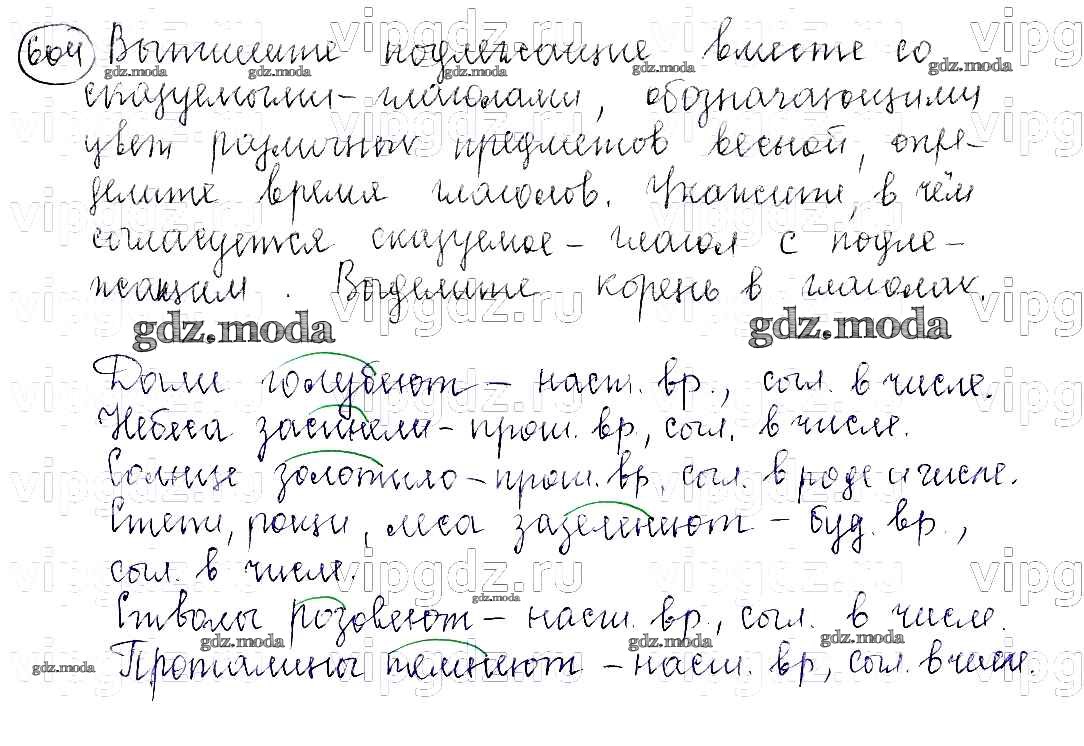 604 Выпишите подлежащие вместе со
сказуемыми-глаголами, обозначающими
цвет различных предметов весной, опре-
делите время глаголов. Укажите, в чём
согласуется сказуемое-глагол с подле-
жащим. Выделите корень в глаголах.
gdz.moda gdz.moda
Дали голубеют - наст. вр., согл. в числе.
Небеса засинели - прош. вр., согл. в числе.
Солнце золотило - прош. вр., согл. в роде и числе.
Степи, рощи, леса зазеленеют - буд. вр.,
согл. в числе.
Стволы розовеют - наст. вр., согл. в числе.
Проталины темнеют - наст. вр., согл. в числе.